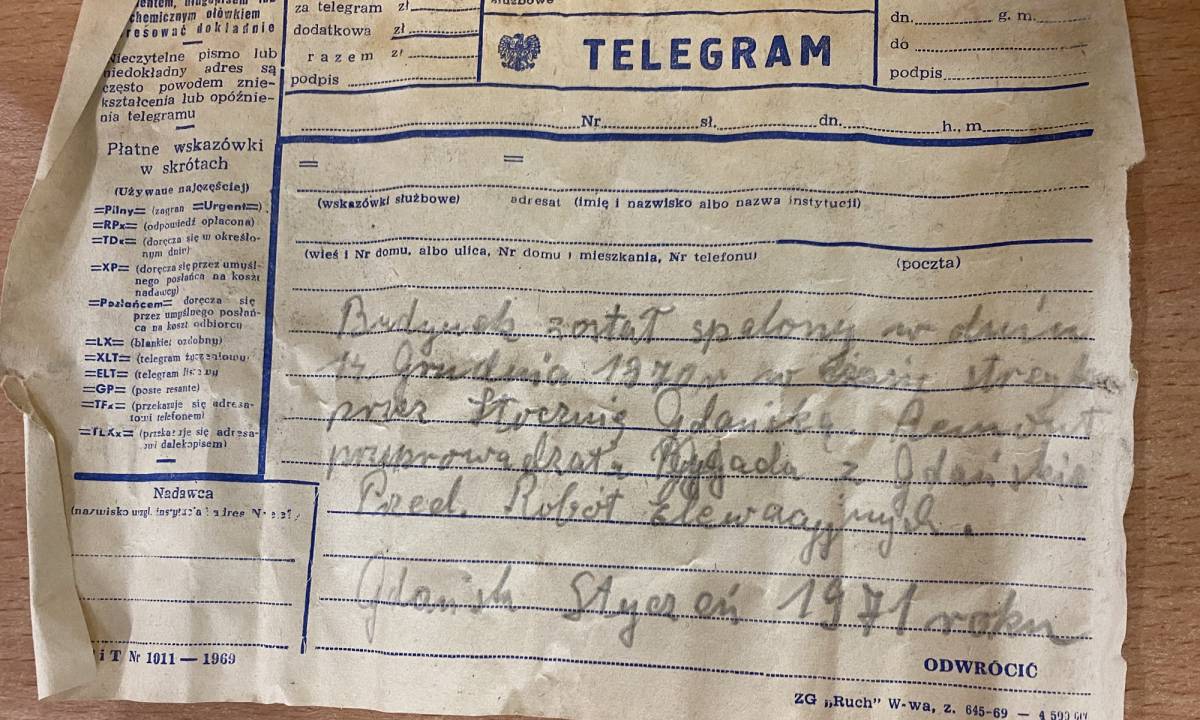 chemicznym ołówkiem
resować dokładnie
Nieczytelne pismo lub
niedokładny adres są
często powodem znie-
kształcenia lub opóźnie-
nia telegramu
Płatne wskazówki
w skrótach
(Używane najczęściej)
=Pilny= (zagran =Urgent=)
=RPx= (odpowiedź opłacona)
=TDx= (doręcza się w określo-
nym dniu)
=XP= (doręcza się przez umyśl-
nego posłańca na koszt
nadawcy)
=Posłańcem= doręcza się
przez umyślnego posłań-
ca na koszt odbiorcy
=LX= (blankiet ozdobny)
=XLT= (telegram życzeniowy)
=ELT= (telegram
=GP= (poste resante)
=TFx= (przekazuje się adresa-
towi telefonem)
=TLXx= (przekazuje się adresa-
towi dalekopisem)
Nadawca
(nazwisko wzgl. instytucja i adres
i T Nr 1011 — 1969
za telegram zł
dodatkowa zł
razem zł
podpis
służbowe
TELEGRAM
dn. g. m.
do
podpis
Nr sł. dn. h., m
= =
(wskazówki służbowe) adresat (imię i nazwisko albo nazwa instytucji)
(wieś i Nr domu, albo ulica, Nr domu i mieszkania, Nr telefonu) (poczta)
Budynek został spalony w dniu
14 Grudnia 1970r w czasie
przez Stocznię Gdańską. Remont
Brygada z Gdańskie
Przed. Robót Elewacyjnych.
Gdańsk Styczeń 1971 roku
ODWRÓCIĆ
ZG „Ruch" W-wa, z. 645-69 — 4 500